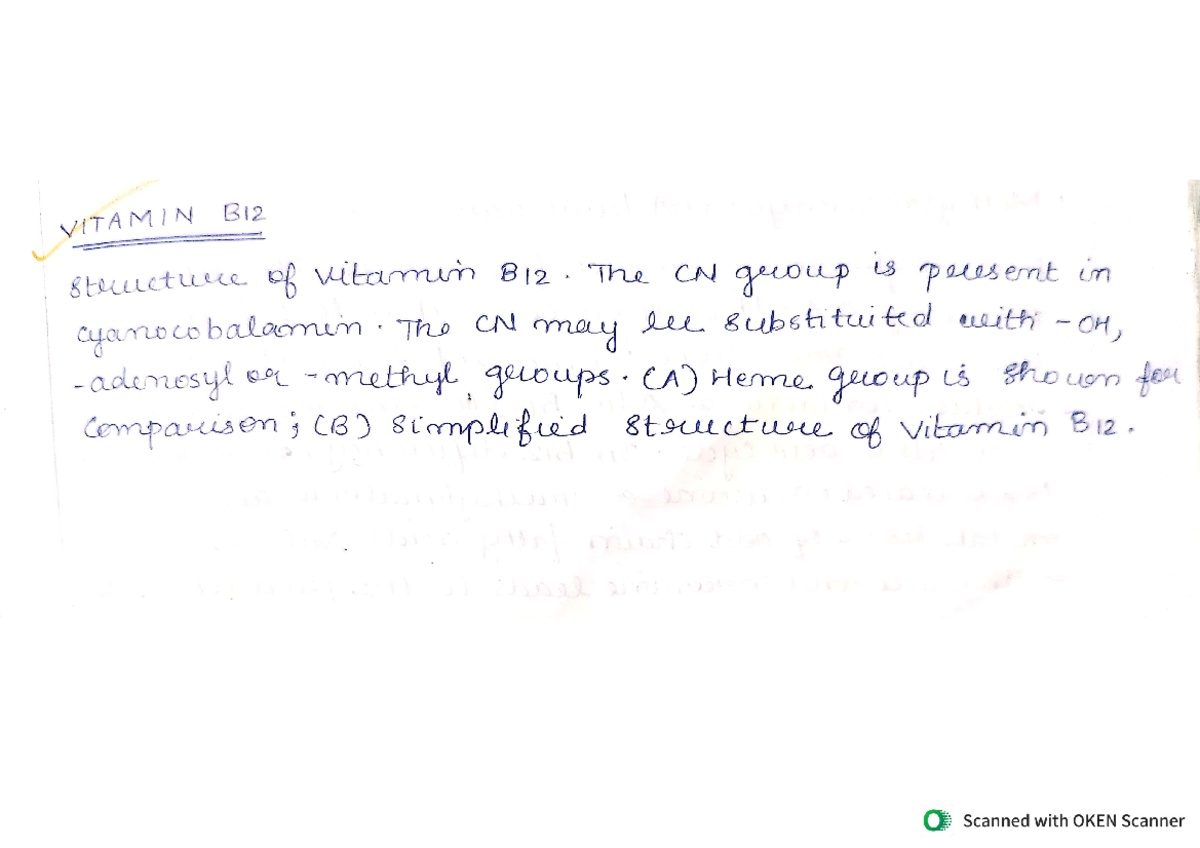 VITAMIN B12
Structure of Vitamin B12. The CN group is present in
cyanocobalamin. The CN may be substituited with -OH,
-adenosyl or -methyl, groups. (A) Heme group is shown for
Comparison; (B) Simplified Structure of Vitamin B12.
Scanned with OKEN Scanner